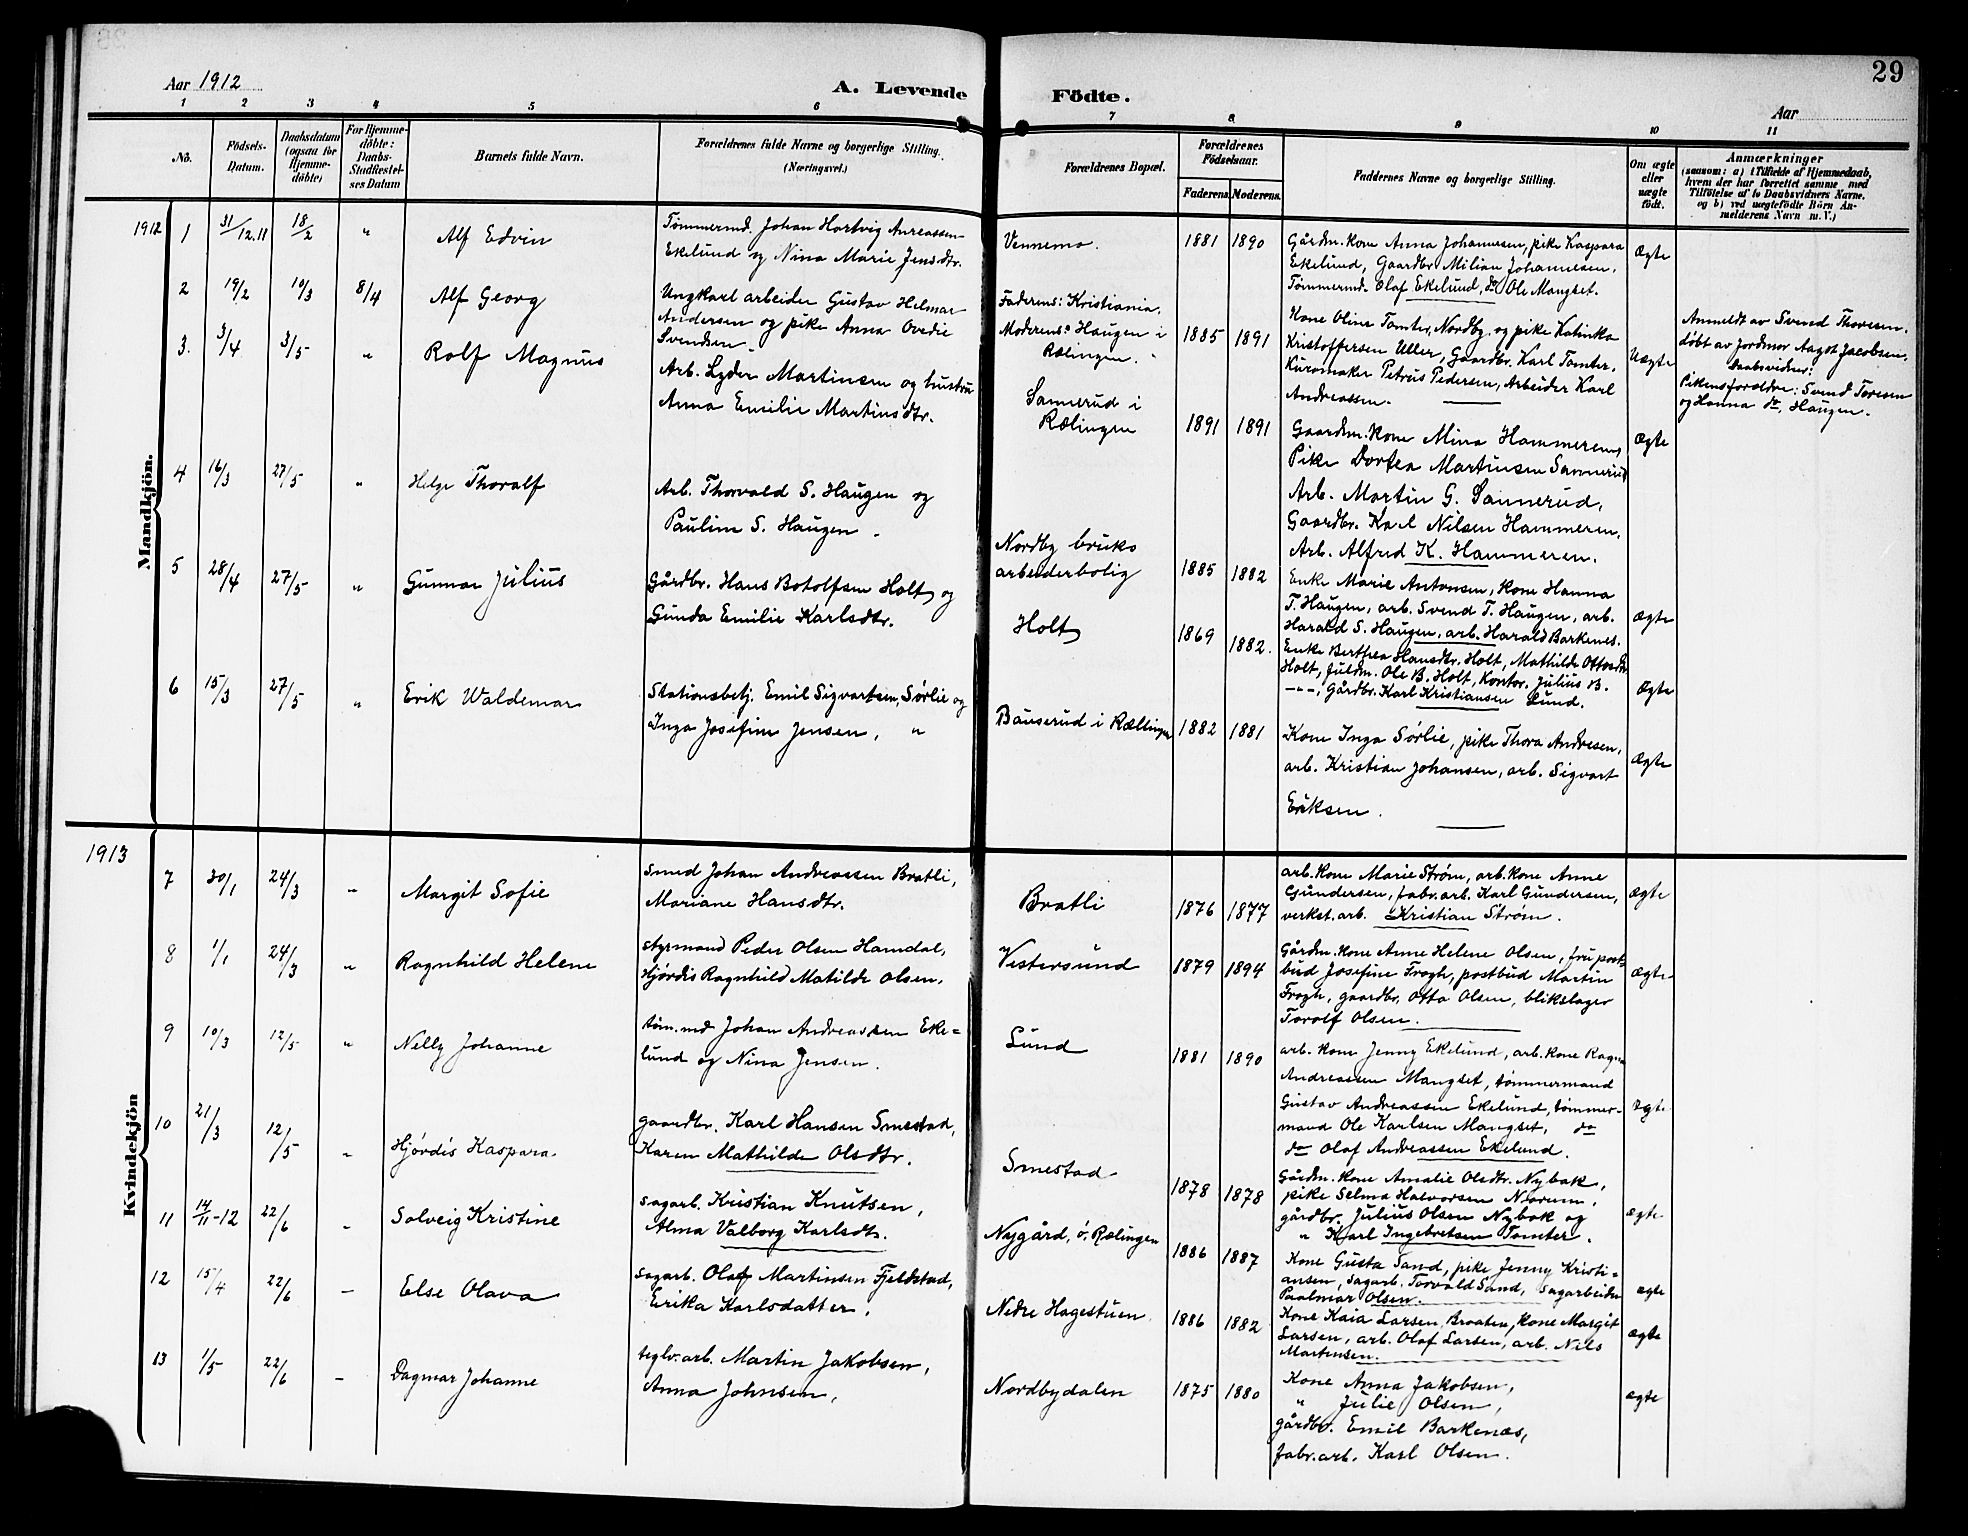 29
Aar 1912
A. Levende Födte.
Aar
1 2 3 4 5 6 7 8 9 10 11
No.
Födsels-Datum.
Daabsdatum (ogsaa for Hjemme-döbte)
For Hjemme-döbte: Daabs-Stadfæstel-ses Datum
Barnets fulde Navn.
Forældrenes fulde Navne og borgerlige Stilling.
(Næringsvei.)
Forældrenes Bopæl.
Forældrenes Födselsaar.
Faderens. Moderens.
Faddernes Navne og borgerlige Stilling.
Om ægte eller uægte födt.
Anmærkninger
(saasom: a) i Tilfælde af Hjemmedaab,
hvem der har forrettet samme med
Tilföielse af to Daabsvidners Navne,
og b) ved uægtefödte Börn An-
melderens Navn m. V.)
Mandkjön.
1912 1 31/12.11 18/2 " Alf Edvin
Tømmermd. Johan Hartvig Anreassen
Ekelund og Nina Marie Jensdtr.
Vennemo. 1881 1890
Gårdm. kone Anna Johannesen, pike Kaspara
Ekelund, Gaardbr. Milian Johannesen,
Tømmermd. Olaf Ekelund, do Ole Mangset.
Ægte
2 19/2 10/3 8/4 Alf Georg
Ungkarl arbeider Gustav Helmar
Andersen og pike Anna Ovedie
Svendsen
Faderens: Kristiania.
Moderens: Haugen i
Rælingen.
1885 1891
Kone Oline Tomter, Nordby, og pike Katinka
Kristoffersen Uller, Gaardbr. Karl Tomter,
Kurvmaker Petrus Pedersen, Arbeider Karl
Andreassen.
Uægte
Anmeldt av Svend Thoresen.
døbt av Jordmor Aagot Jacobsen.
Daabsvidner:
Pikens foreldre: Svend Toresen
og Hanna do, Haugen.
3. 3/4 3/5 " Rolf Magnus
Arb. Lyder Martinsen og hustru
Anna Emilie Martinsdtr.
Sannerud i
Rælingen
1891 1891
Gaardm. kone Mina Hammeren,
Pike Dortea Martinsen Sannerud
Arb. Martin G. Sannerud,
Gaardbr. Karl Nilsen Hammeren,
Arb. Alfred K. Hammeren.
Ægte
4 16/3 27/5 " Helge Thoralf
Arb. Thorvald S. Haugen og
Pauline S. Haugen.
Nordby bruks
arbeiderbolig
1885 1882
Enke Marie Antonsen, kone Hanna
T. Haugen, arb. Svend T. Haugen, arb.
Harald S. Haugen, arb. Harald Barkenes.
Ægte
5 28/4 27/5 " Gunnar Julius
Gårdbr. Hans Botolfsen Holt og
Gunda Emilie Karlsdtr.
Holt 1869 1882.
Enke Berthea Hansdtr. Holt, Mathilde Ottosdtr.
Holt, Juldm. Ole B. Holt, Kontor. Julius B.
—"—, Gårdbr. Karl Kristiansen Lund.
Ægte
6 15/3 27/5 " Erik Waldemar
Stationsbetj. Emil Sigvartsen, Sørlie og
Inga Josefine Jensen, "
Bauserud i Rællingen 1882 1881
Kone Inga Sørlie, pike Thora Andresen,
arb. Kristian Johansen, arb. Sigvart
Eriksen.
Ægte
Kvindekjön
1913
7 30/1 24/3 " Margit Sofie
smed Johan Andreassen Bratli,
Mariane Hansdtr.
Bratli 1876 1877
arb. kone Marie Strøm, arb. kone Anne
Gundersen, fabr. arb. Karl Gundersen,
verkst. arb. Kristian Strøm.
ægte
8 1/1 24/3 " Ragnhild Helene
styrmand Peder Olsen Hamdal,
Hjørdis Ragnhild Matilde Olsen.
Vestersund 1879 1894
Gårdm. kone Anne Helene Olsen, fru post-
bud Josefine Frogh, postbud Martin
Frogh, gaardbr. Otto Olsen, blikslager
Torolf Olsen.
ægte
9 10/3 12/5 " Nelly Johanne
tøm.md Johan Andreassen Eke=
lund og Nina Jensen.
Lund 1881 1890
arb. kone Jenny Ekelund, arb. kone Ragna
Andreassen Mangset, tømmermand
Gustav Andreassen Ekelund, tømmer-
mand Ole Karlsen Mangset, do
do Olaf Andreassen Ekelund.
ægte
10 21/3 12/5 " Hjørdis Kaspara
gaardbr. Karl Hansen Smestad,
Karen Mathilde Olsdtr.
Smestad 1878 1878
Gårdm. kone Amalie Olsdtr. Nybak,
pike Selma Halvorsen Norum,
gårdbr. Julius Olsen Nybak og
" Karl Ingebretsen Tomter.
ægte
11 14/11-12 22/6 - Solveig Kristine
sagarb. Kristian Knutsen,
Alma Valborg Karlsdtr.
Nygård, ö. Rælingen 1886 1887
Kone Gusta Sand, pike Jenny Kristi-
ansen, sagarb. Torvald Sand, sagarbeider
Paalmar Olsen.
ægte
12 15/4 22/6 - Else Olava
sagarb. Olaf Martinsen Fjeldstad,
Erika Karlsdatter.
Nedre Hagestuen 1886 1882
Kone Kaia Larsen, Braaten, kone Margit
Larsen, arb. Olaf Larsen, arb. Nils
Martinsen.
ægte
13 1/5 22/6 - Dagmar Johanne
teglv. arb. Martin Jakobsen,
Anna Johnsen,
Nordbydalen 1875 1880
Kone Anna Jakobsen,
" Julie Olsen,
gårdbr. Emil Barkenæs,
fabr. arb. Karl Olsen.
ægte